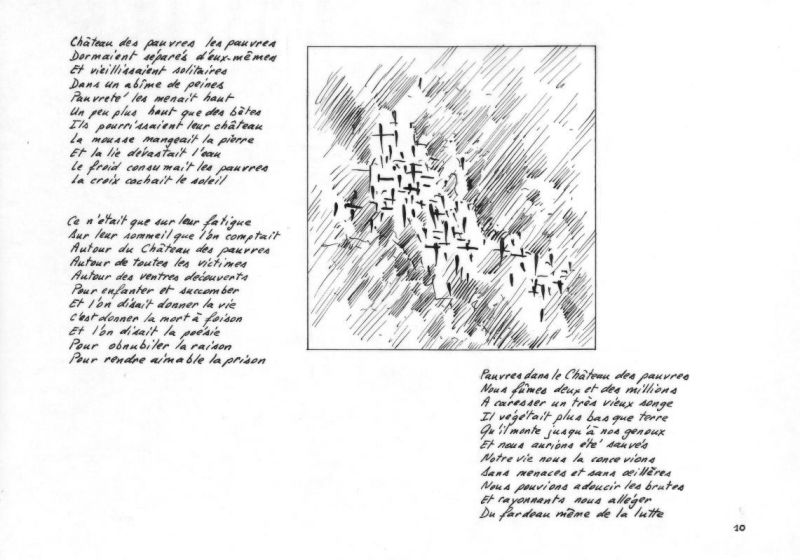 Château des pauvres les pauvres
Dormaient séparés d'eux-mêmes
Et vieillissaient solitaires
Dans un abîme de peines
Pauvreté les menait haut
Un peu plus haut que des bêtes
Ils pourrissaient leur château
La mousse mangeait la pierre
Et la lie dévastait l'eau
Le froid consumait les pauvres
La croix cachait le soleil
Ce n'était que sur leur fatigue
Sur leur sommeil que l'on comptait
Autour du Château des pauvres
Autour de toutes les victimes
Autour des ventres découverts
Pour enfanter et succomber
Et l'on disait donner la vie
C'est donner la mort à foison
Et l'on disait la poésie
Pour obnubiler la raison
Pour rendre aimable la prison
Pauvres dans le Château des pauvres
Nous fûmes deux et des millions
A caresser un très vieux songe
Il végétait plus bas que terre
Qu'il monte jusqu'à nos genoux
Et nous aurions été sauvés
Notre vie nous la concevions
Sans menaces et sans œillères
Nous pouvions adoucir les brutes
Et rayonnants nous alléger
Du fardeau même de la lutte
10